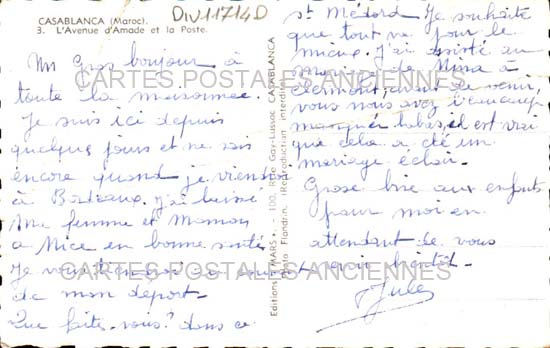 CASABLANCA (Maroc).
3. L'Avenue d'Amade et la Poste.
Div11714D
Un Gros bonjour à
toute la maisonnée.
Je suis ici depuis
quelques jours et ne sais
encore quand je viens
à Bordeaux. J'ai laissé
Ma femme et Maman
a Nice en bonne santé
Je vous
de mon départ-
Que faites-vous? dans ce
Editions " MARS ". - 100, Rue Gay-Lussac CASABLANCA
Photo Flandrin. (Reproduction interdite)
St Médard Je souhaite
que tout va pour le
mieux. J'ai assisté au
mariage de Nina à
Clermont, avant de venir,
vous nous avez beaucoup
manqués et il est vrai
que cela a été un
mariage éclair.
Grosse bise aux enfants
pour moi en
attendant de vous
revoir bientôt-
Jules
CARTES POSTALES ANCIENNES
CARTES POSTALES ANCIENNES